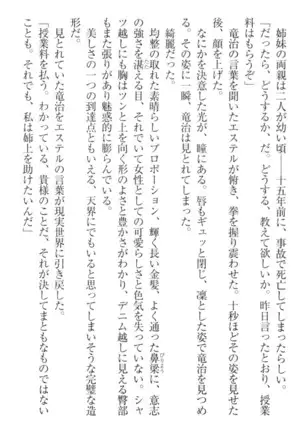 姉妹の両親は二人が幼い頃――十五年前に、事故で死亡してしまったらしい。
「だったら、どうするか、だ。どうする、教えて欲しいか。昨日言ったとおり、授業
料はもらうぞ」
竜治の言葉を聞いたエステルが俯き、拳を握り震わせた。十秒ほどその姿を見せた
後、顔を上げた。
なにかを決意した光が、瞳にある。唇もギュッと閉じ、凜とした姿で竜治を見つめ
る。その姿に一瞬、竜治は見とれてしまった。
綺麗だった。
均整の取れた素晴らしいプロポーション、輝く長い金髪、よく通った鼻梁に、意志
の強さを湛える目。それでいて女性としての可愛らしさと色気を失っていない。シャ
ツ越しにも胸はツンと上を向く形のよさと豊かさがわかり、デニム越しに見える臀部
もまた張りがあり魅惑的に膨らんでいる。
美しさの一つの到達点ともいえる、天界にでもいると思ってしまいそうな完璧な造
形だ。
見とれていた竜治をエステルの言葉が現実世界に引き戻した。
「授業料を払う。わかっている、貴様のことだ、それが決してまともなものではない
ことも。それでも、私は姉上を助けたいんだ」